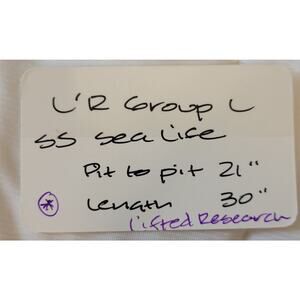 L'R Group L
SS Sea Life
Pit to pit 21"
Length 30"
Lifted Research